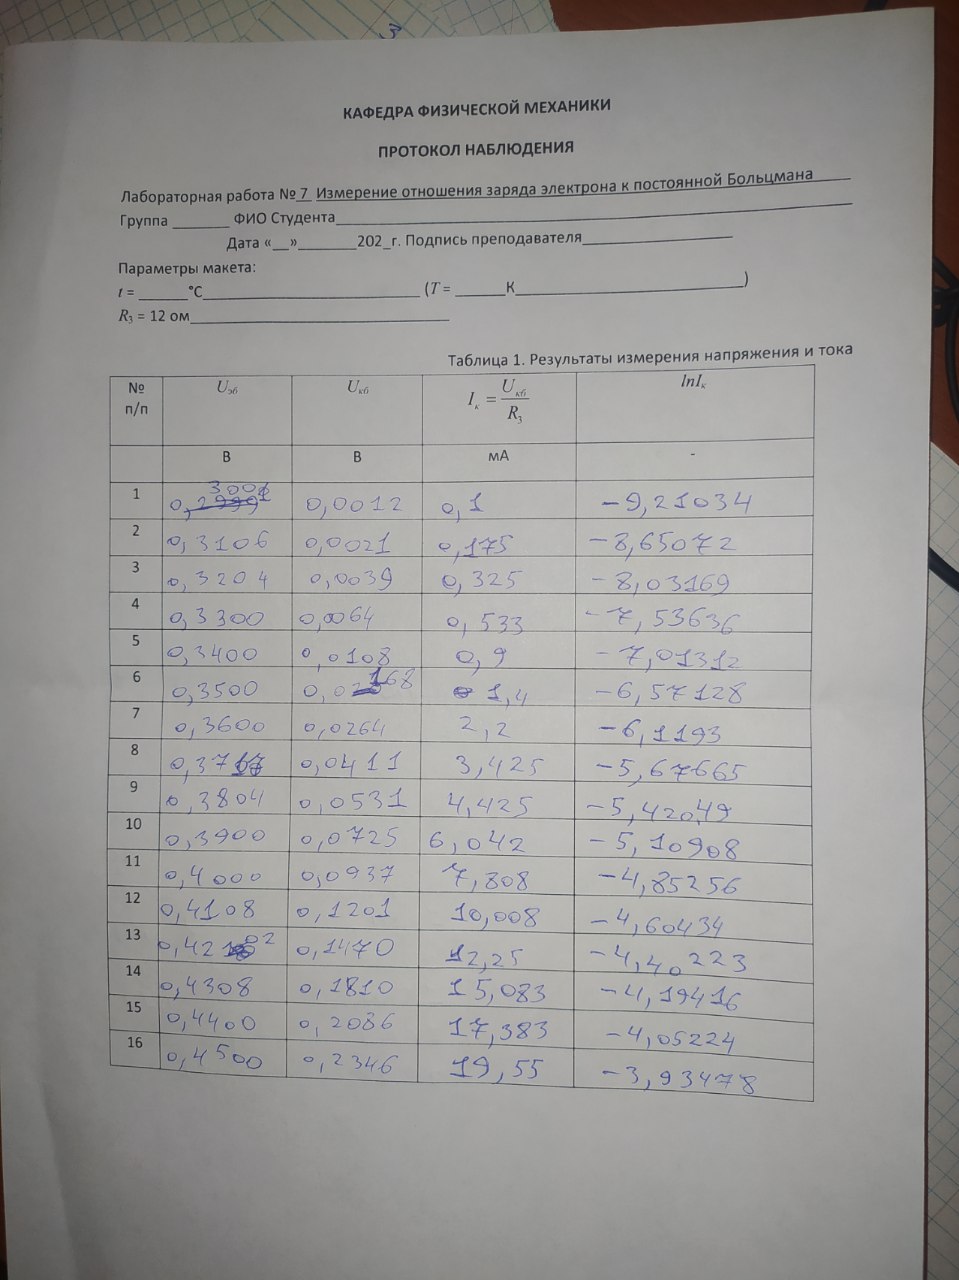 КАФЕДРА ФИЗИЧЕСКОЙ МЕХАНИКИ
ПРОТОКОЛ НАБЛЮДЕНИЯ
Лабораторная работа № 7 Измерение отношения заряда электрона к постоянной Больцмана
Группа ________ ФИО Студента________
Дата «__»_______202_г. Подпись преподавателя________
Параметры макета:
t = ______°С________ (T = ______К________)
R₃ = 12 ом________
Таблица 1. Результаты измерения напряжения и тока
№ п/п Uэб Uкб Iк = Uкб/R₃ lnIк
В В мА -
1 0,3001 0,0012 0,1 -9,21034
2 0,3106 0,0021 0,175 -8,65072
3 0,3204 0,0039 0,325 -8,03169
4 0,3300 0,0064 0,533 -7,53636
5 0,3400 0,0108 0,9 -7,01312
6 0,3500 0,0168 1,4 -6,57128
7 0,3600 0,0264 2,2 -6,1193
8 0,3717 0,0411 3,425 -5,67665
9 0,3804 0,0531 4,425 -5,42049
10 0,3900 0,0725 6,042 -5,10908
11 0,4000 0,0937 7,808 -4,85256
12 0,4108 0,1201 10,008 -4,60434
13 0,4202 0,1470 12,25 -4,40223
14 0,4308 0,1810 15,083 -4,19416
15 0,4400 0,2086 17,383 -4,05224
16 0,4500 0,2346 19,55 -3,93478